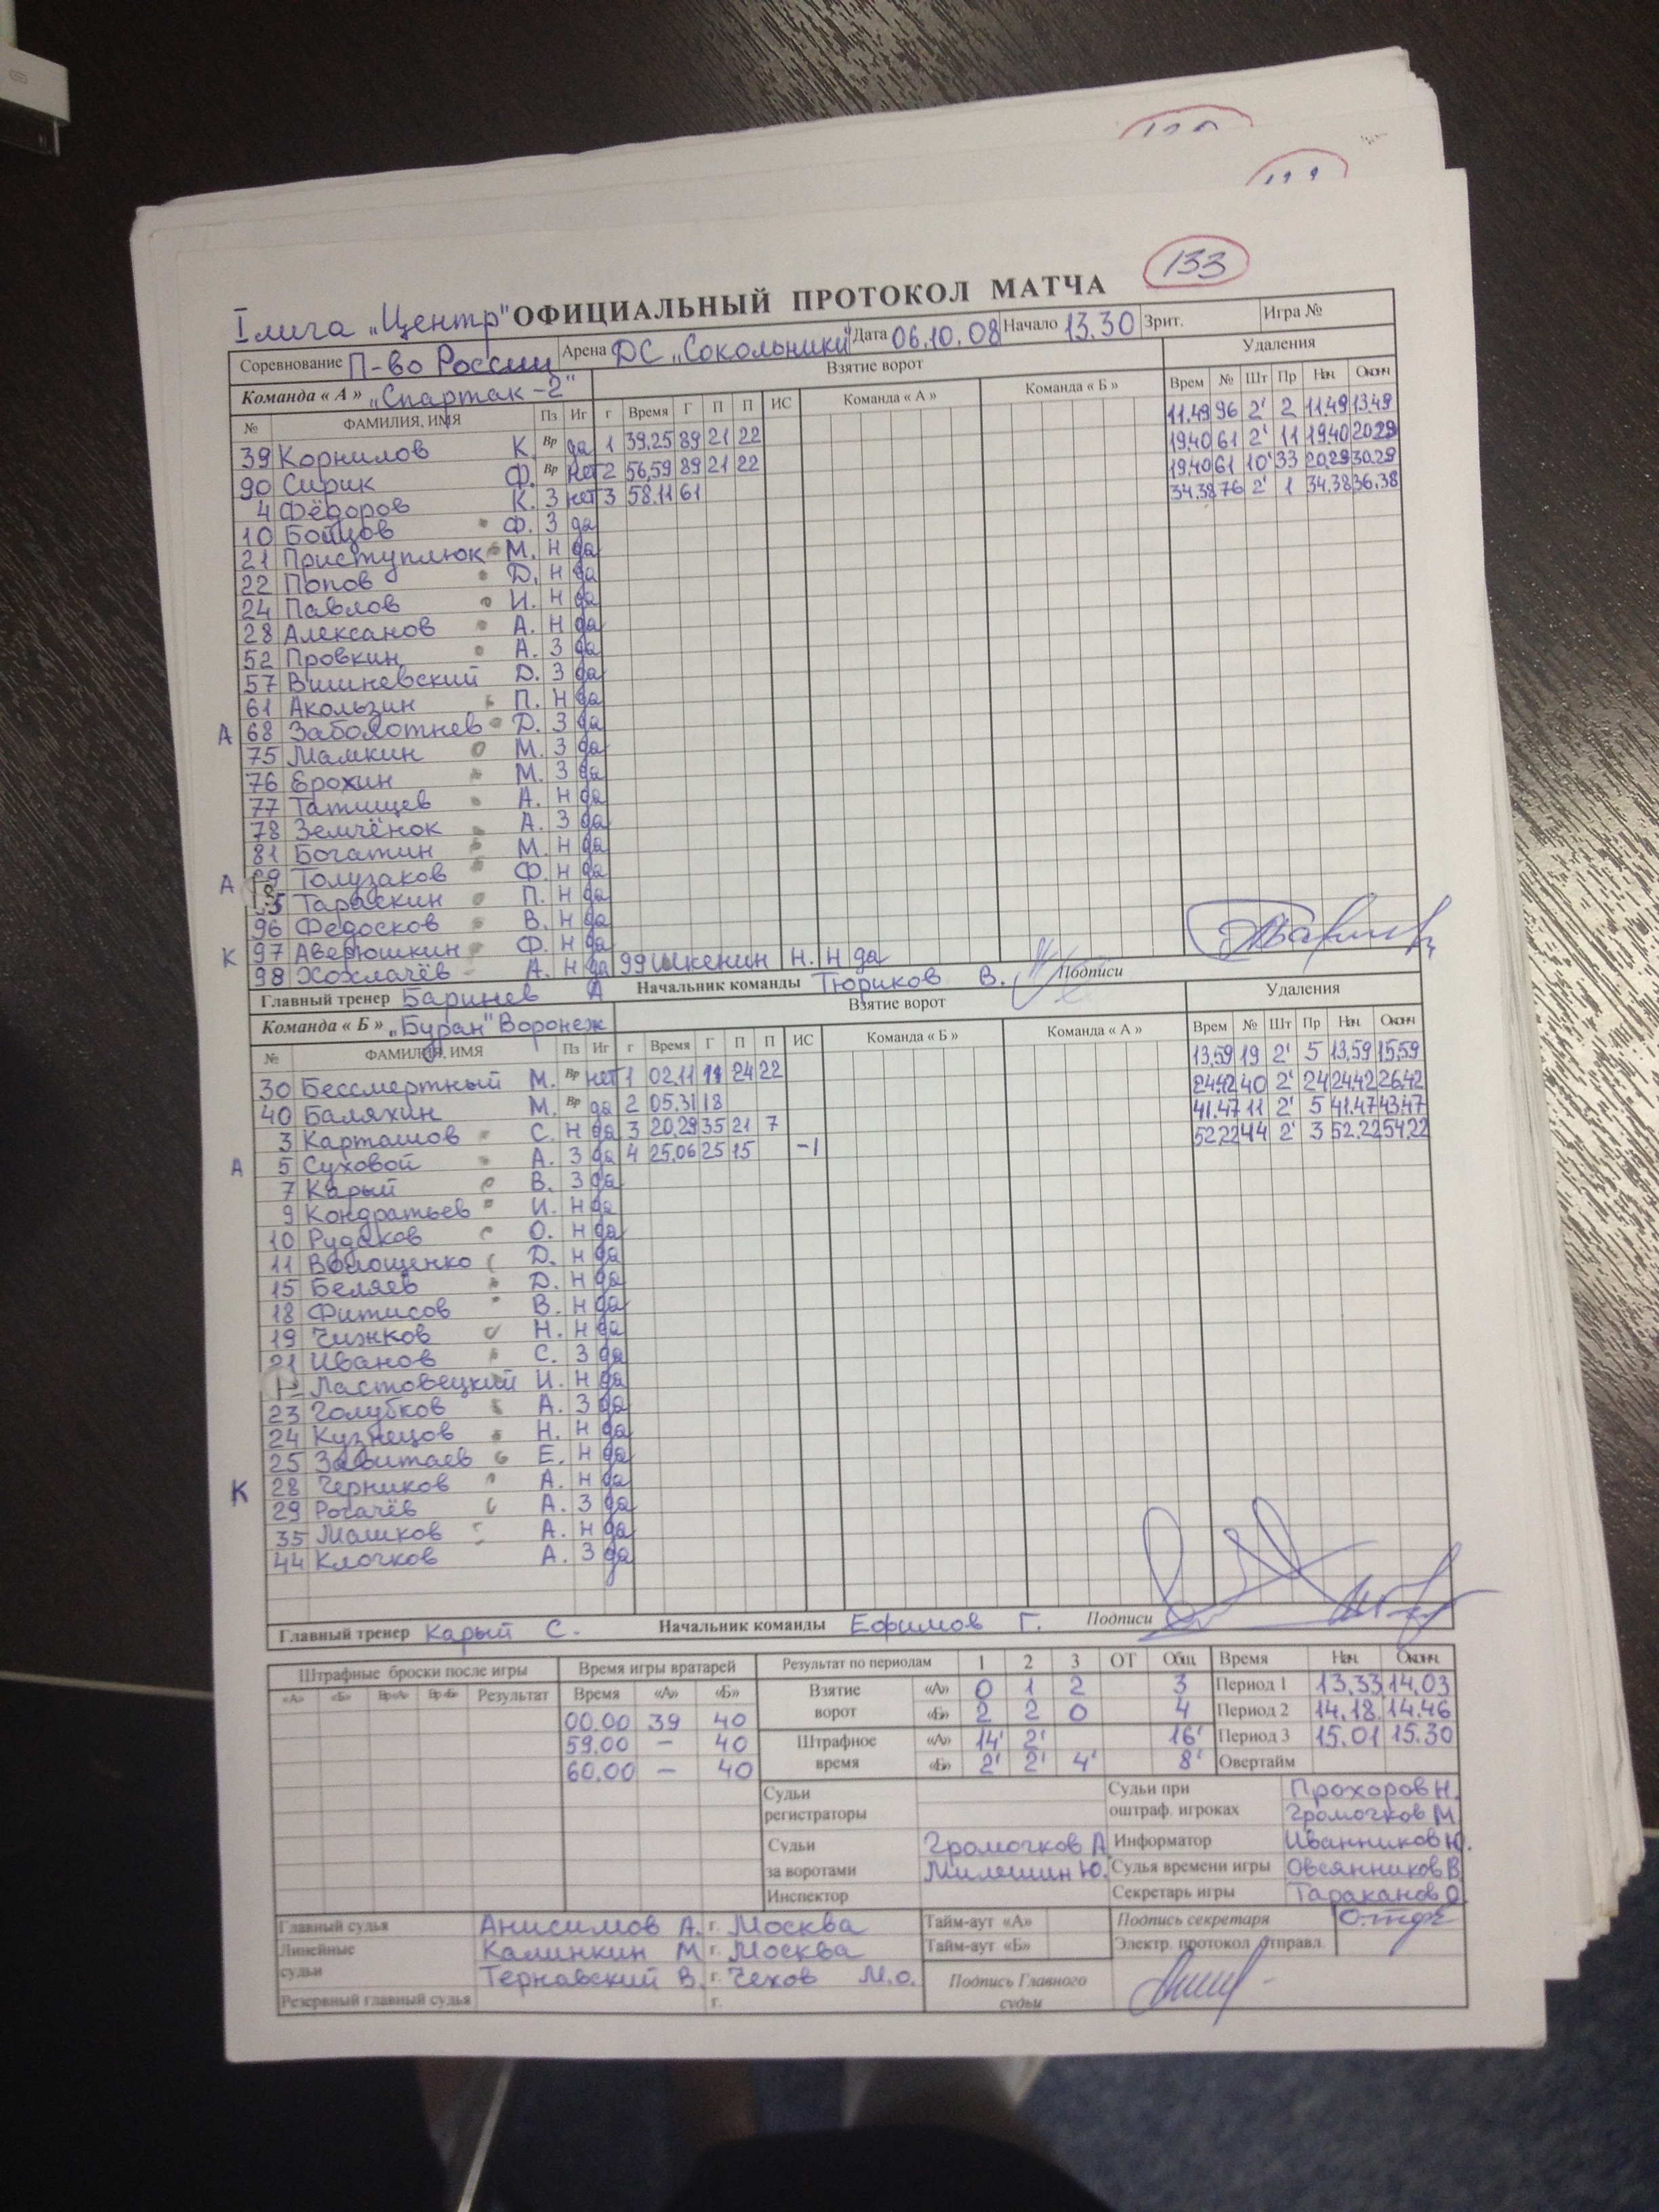 133
I лига „Центр" ОФИЦИАЛЬНЫЙ ПРОТОКОЛ МАТЧА
Соревнование П-во России Арена ДС „Сокольники" Дата 06.10.08 Начало 13.30 Зрит. Игра №
Команда « А » „Спартак-2" Взятие ворот Удаления
№ ФАМИЛИЯ, ИМЯ Пз Иг г Время Г П П ИС Команда « А » Команда « Б » Врем № Шт Пр Нач. Оконч
39 Корнилов К. Вр да 1 39,25 89 21 22 11.49 96 2' 2 11.49 13.49
90 Сирик Ф. Вр нет 2 56,59 89 21 22 19.40 61 2' 11 19.40 20.29
4 Фёдоров К. З нет 3 58.11 61 19.40 61 10' 33 20.29 30.29
10 Бойцов Ф. З да 34.38 76 2' 1 34.38 36.38
21 Приступлюк М. Н да
22 Попов Д. Н да
24 Павлов И. Н да
28 Алексанов А. Н да
52 Провкин А. З да
57 Вишневский Д. З да
61 Акользин П. Н да
А 68 Заболотнев Д. З да
75 Мамкин М. З да
76 Ерохин М. З да
77 Татищев А. Н да
78 Земчёнок А. З да
81 Богатин М. Н да
А 89 Толузаков Ф. Н да
Тараскин П. Н да
96 Федосков В. Н да
К 97 Аверюшкин Ф. Н да
98 Хохлачёв А. Н да 99 Шкенин Н. Н да
Главный тренер Баринев А Начальник команды Тюриков В. Подписи
Команда « Б » „Буран" Воронеж Взятие ворот Удаления
№ ФАМИЛИЯ, ИМЯ Пз Иг г Время Г П П ИС Команда « Б » Команда « А » Врем № Шт Пр Нач. Оконч
30 Бессмертный М. Вр нет 1 02.11 11 24 22 13,59 19 2' 5 13,59 15,59
40 Баляхин М. Вр да 2 05.31 18 24.42 40 2' 24 24.42 26.42
3 Карташов С. Н да 3 20,29 35 21 7 41.47 11 2' 5 41.47 43.47
А 5 Суховой А. З да 4 25.06 25 15 -1 52.22 44 2' 3 52.22 54.22
7 Карый В. З да
9 Кондратьев И. Н да
10 Рудаков О. Н да
11 Волощенко Д. Н да
15 Беляев Д. Н да
18 Фитисов В. Н да
19 Чижков Н. Н да
21 Иванов С. З да
Ластовецкий И. Н да
23 Голубков А. З да
24 Кузнецов Н. Н да
25 Завитаев Е. Н да
К 28 Черников А. Н да
29 Рогачёв А. З да
35 Машков А. Н да
44 Клочков А. З да
Главный тренер Карый С. Начальник команды Ефимов Г. Подписи
Штрафные броски после игры Время игры вратарей Результат по периодам 1 2 3 ОТ Общ Время Нач. Оконч.
«А» «Б» Вр«А» Вр«Б» Результат Время «А» «Б» Взятие ворот «А» 0 1 2 3 Период 1 13.33 14.03
00.00 39 40 «Б» 2 2 0 4 Период 2 14.18 14.46
59.00 – 40 Штрафное время «А» 14' 2' 16' Период 3 15.01 15.30
60.00 – 40 «Б» 2' 2' 4' 8' Овертайм
Судьи регистраторы Судьи при оштраф. игроках Прохоров Н.
Громочков М
Судьи за воротами Громочков А Информатор Иванников Ю.
Милешин Ю. Судья времени игры Овсянников В
Инспектор Секретарь игры Тараканов О
Главный судья Анисимов А. г. Москва Тайм-аут «А» Подпись секретаря
Линейные судьи Калинкин М г. Москва Тайм-аут «Б» Электр. протокол отправл.
Тернавский В. г. Чехов М.о. Подпись Главного судьи
Резервный главный судья г.